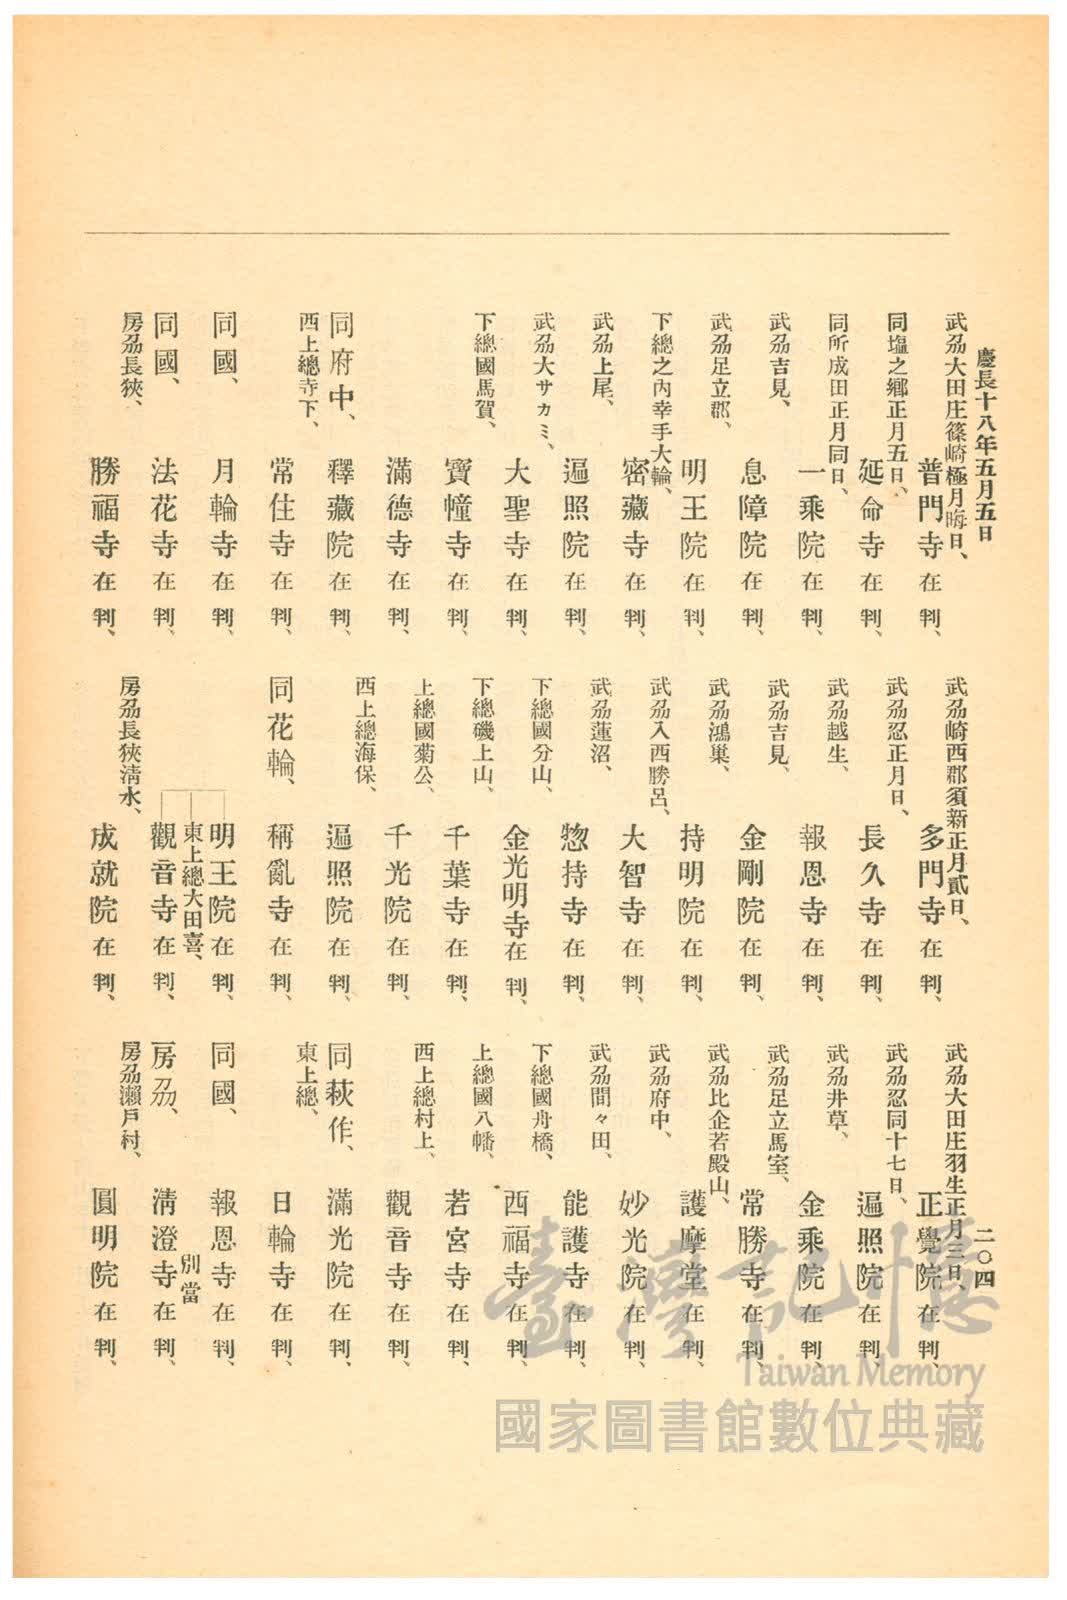 慶長十八年五月五日
二〇四
武刕大田庄篠崎極月晦日、
普門寺在判、
同塩之鄉正月五日、
延命寺在判、
同所成田正月同日、
一乘院在判、
武刕吉見、
息障院在判、
武刕足立郡、
明王院在判、
下總之內幸手大輪、
密藏寺在判、
武刕上尾、
遍照院在判、
武刕大サカミ、
大聖寺在判、
下總國馬賀、
寶幢寺在判、
滿德寺在判、
同府中、
釋藏院在判、
西上總寺下、
常住寺在判、
同國、
月輪寺在判、
同國、
法花寺在判、
房刕長狹、
勝福寺在判、
武刕崎西郡須新正月貳日、
多門寺在判、
武刕忍正月日、
長久寺在判、
武刕越生、
報恩寺在判、
武刕吉見、
金剛院在判、
武刕鴻巢、
持明院在判、
武刕入西勝呂、
大智寺在判、
武刕蓮沼、
惣持寺在判、
下總國分山、
金光明寺在判、
下總磯上山、
千葉寺在判、
上總國菊公、
千光院在判、
西上總海保、
遍照院在判、
同花輪、
稱亂寺在判、
明王院在判、
東上總大田喜、
觀音寺在判、
房刕長狹淸水、
成就院在判、
武刕大田庄羽生正月三日、
正覺院在判、
武刕忍同十七日、
遍照院在判、
武刕井草、
金乘院在判、
武刕足立馬室、
常勝寺在判、
武刕比企若殿山、
護摩堂在判、
武刕府中、
妙光院在判、
武刕間々田、
能護寺在判、
下總國舟橋、
西福寺在判、
上總國八幡、
若宮寺在判、
西上總村上、
觀音寺在判、
同萩作、
滿光院在判、
東上總、
日輪寺在判、
同國、
報恩寺在判、
別當
房刕、
淸澄寺在判、
房刕瀨戶村、
圓明院在判、
臺灣記憶
Taiwan Memory
國家圖書館數位典藏